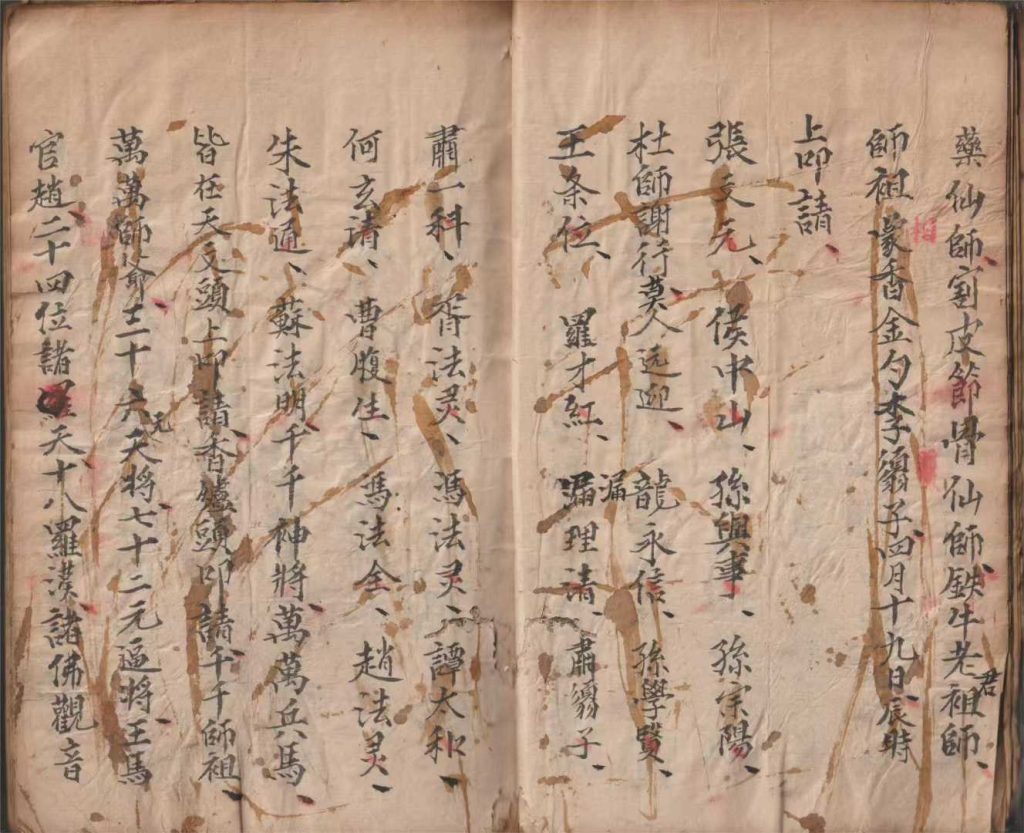 藥仙師割皮節骨仙師鉄牛老祖君師、
師祖蒙香金勺李翁子四月十九日辰時
上叩請、
張文元、侯中山、孫興事、孫宗陽、
杜師謝行 远迎、龍永信、孫學賢、
王条位、羅才紅、漏漏理清、肅翁子、
肅一科、胥法灵、馮法灵、譚太和、
何玄清、曹腹生、馮法全、趙法灵、
朱法通、蘇法明、千千神將、萬萬兵馬
皆在天文頭上叩請香爐頭叩請千千師祖、
萬萬師爺三十六元天將七十二元逼將、王馬
官趙、二十四位諸 天十八羅漢諸佛觀音